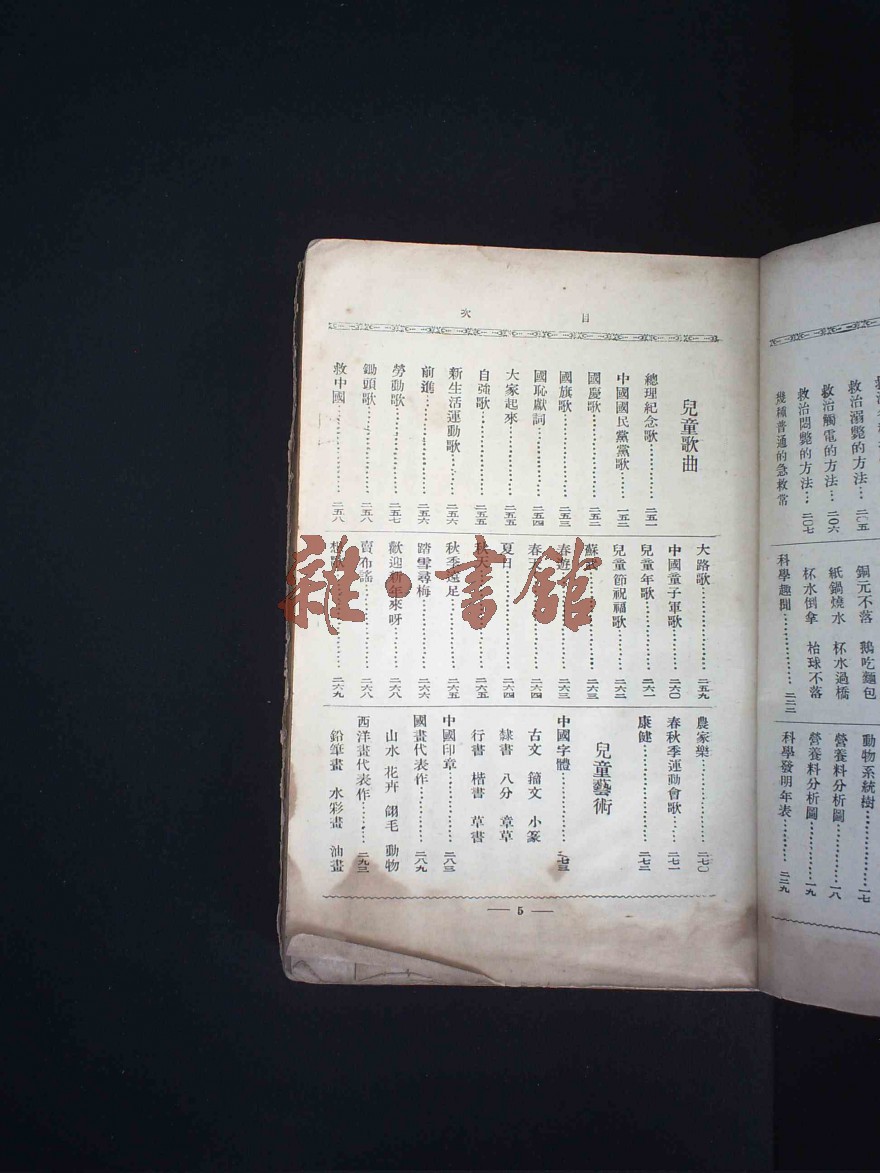 目次
兒童歌曲
總理紀念歌………二五一
中國國民黨黨歌……一五二
國慶歌………二五二
國旗歌………二五三
國恥獻詞………二五四
大家起來………二五五
自強歌………二五五
新生活運動歌………二五六
前進………二五六
勞動歌………二五七
鋤頭歌………二五八
救中國………二五八
大路歌………二五九
中國童子軍歌………二六〇
兒童年歌………二六一
兒童節祝福歌………二六二
蘇武………二六三
春遊………二六三
春天………二六四
夏日………二六四
秋天………二六五
秋季遠足………二六五
踏雪尋梅………二六六
歡迎新年來呀………二六八
賣布謠………二六八
………二六九
農家樂………二七〇
春秋季運動會歌………二七一
康健………二七二
兒童藝術
中國字體………二七三
古文 籀文 小篆
隸書 八分 章草
行書 楷書 草書
中國印章………二八三
國畫代表作………二八九
山水 花卉 翎毛 動物
西洋畫代表作………二九三
鉛筆畫 水彩畫 油畫
— 5 —
救治溺斃的方法…二〇五
救治觸電的方法…二〇六
救治悶斃的方法…二〇七
幾種普通的急救常
銅元不落 鵝吃麵包
紙鍋燒水 杯水過橋
杯水倒拿 枱球不落
科學趣聞………二二二
動物系統樹………一七
營養料分析圖………一八
營養料分析圖………一九
科學發明年表………二二九
雜·書館